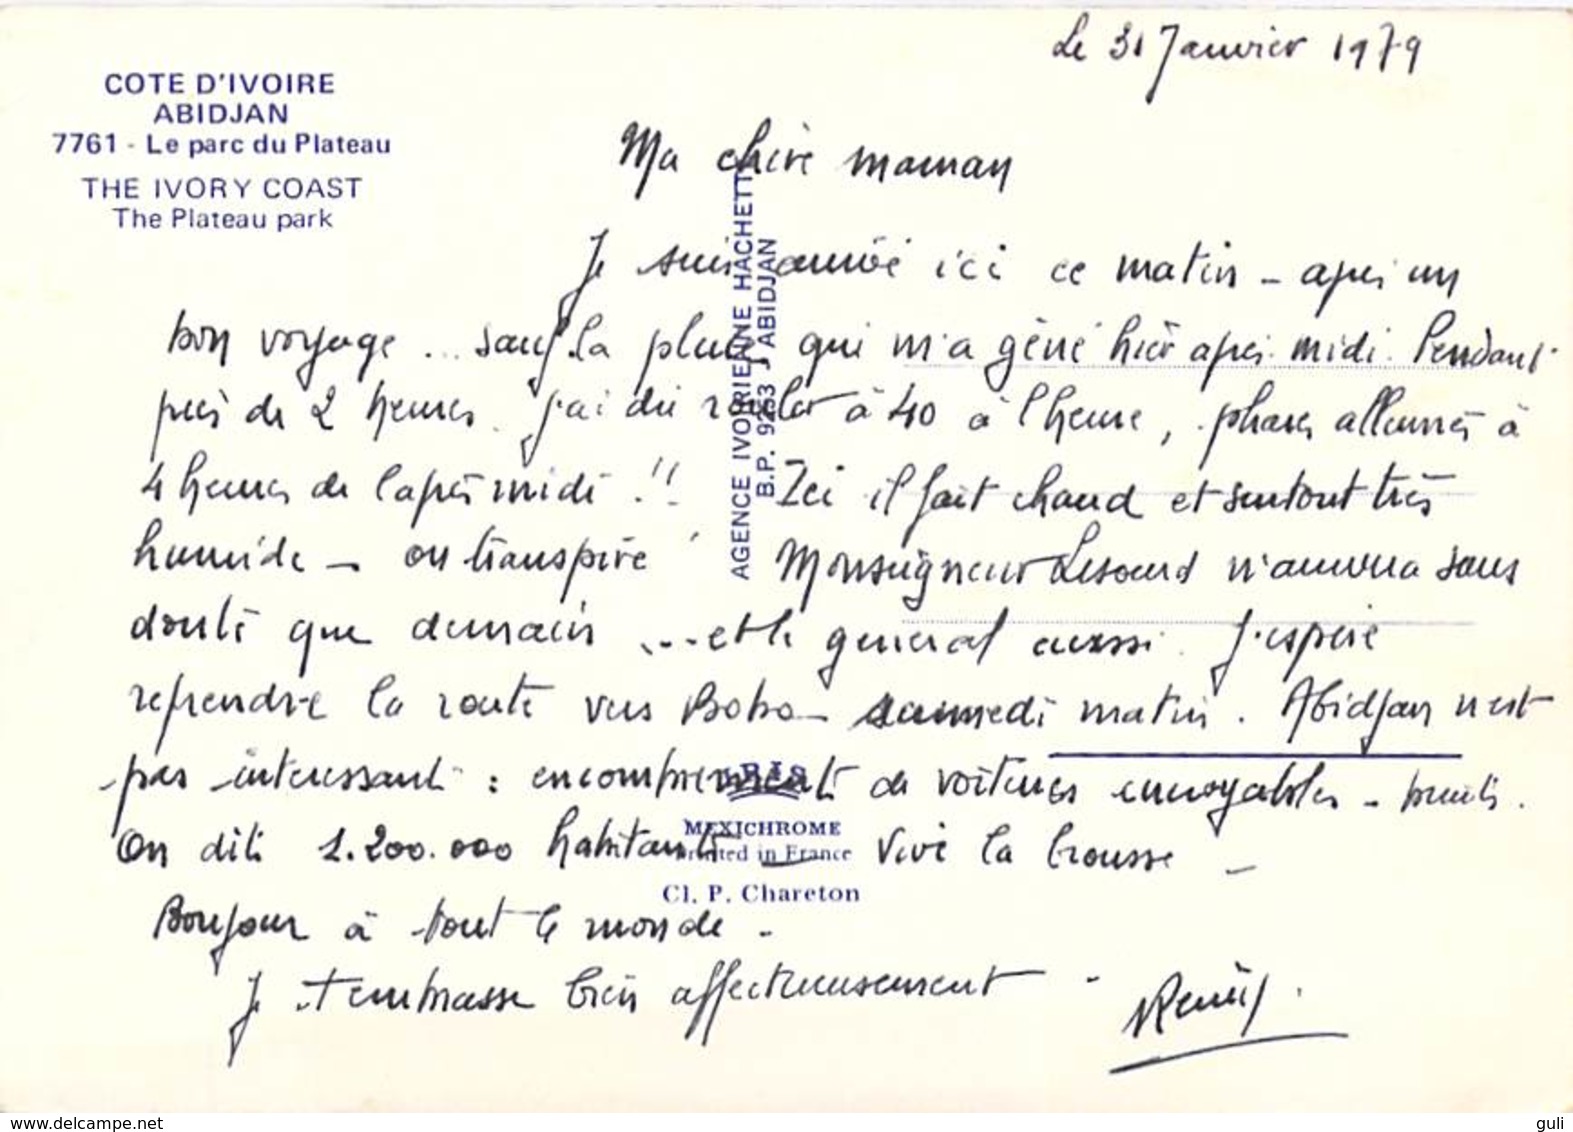 Le 31 Janvier 1979
COTE D'IVOIRE
ABIDJAN
7761 - Le parc du Plateau
THE IVORY COAST
The Plateau park
Ma chère maman
Je suis arrivé ici ce matin - après un
bon voyage ... sauf la pluie qui m'a gêné hier après-midi. Pendant
près de 2 heures j'ai dû rouler à 40 à l'heure, phares allumés à
4 heures de l'après midi !! Ici il fait chaud et surtout très
humide - on transpire ! Monseigneur Lesourd n'arrivera sans
doute que demain ... et le général aussi. J'espère
reprendre la route vers Bobo samedi matin. Abidjan n'est
pas intéressant : encombrement de voitures incroyables - bruits.
On dit 1.200.000 habitants - Vive la brousse -
Bonjour à tout le monde -
Je t'embrasse bien affectueusement -
AGENCE IVOIRIENNE HACHETTE
B.P. 9253 ABIDJAN
IRIS
MEXICHROME
Printed in France
Cl. P. Chareton
www.delcampe.net
guli